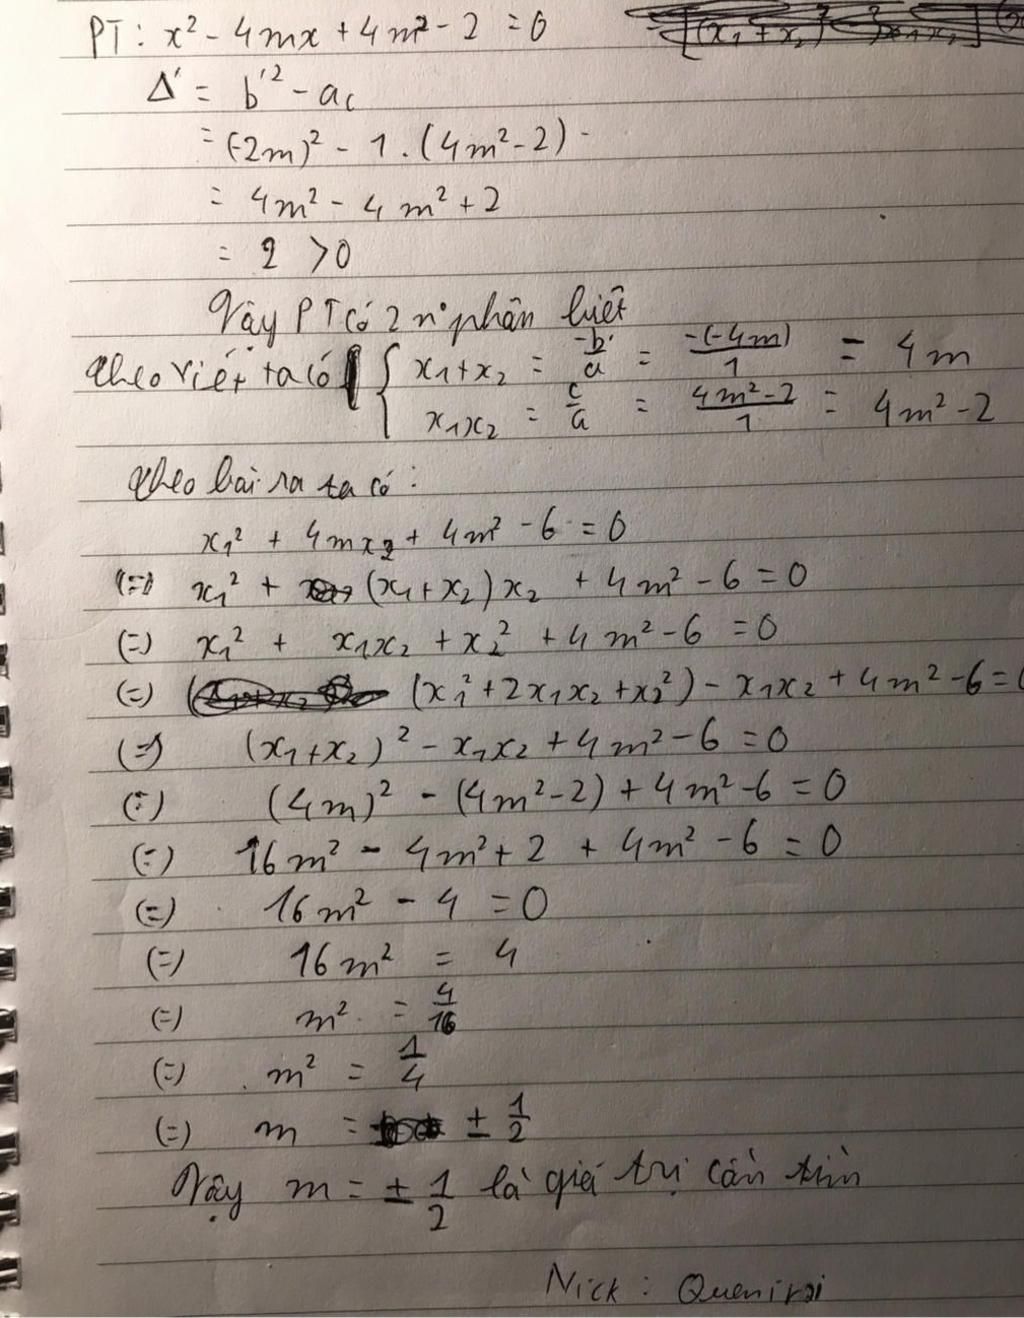 PT: x² - 4mx + 4m² - 2 = 0
Δ' = b'² - ac
= (-2m)² - 1.(4m² - 2)
= 4m² - 4m² + 2
= 2 > 0
Vậy PT có 2 n° phân biệt
Theo Viét ta có { x₁+x₂ = -b/a = -(-4m)/1 = 4m
x₁x₂ = c/a = 4m²-2/1 = 4m² - 2
Theo bài ra ta có:
x₁² + 4mx₂ + 4m² - 6 = 0
(=) x₁² + (x₁+x₂)x₂ + 4m² - 6 = 0
(=) x₁² + x₁x₂ + x₂² + 4m² - 6 = 0
(=) (x₁² + 2x₁x₂ + x₂²) - x₁x₂ + 4m² - 6 = 0
(=) (x₁+x₂)² - x₁x₂ + 4m² - 6 = 0
(=) (4m)² - (4m² - 2) + 4m² - 6 = 0
(=) 16m² - 4m² + 2 + 4m² - 6 = 0
(=) 16m² - 4 = 0
(=) 16m² = 4
(=) m² = 4/16
(=) m² = 1/4
(=) m = ± 1/2
Vậy m = ± 1/2 là giá trị cần tìm
Nick :